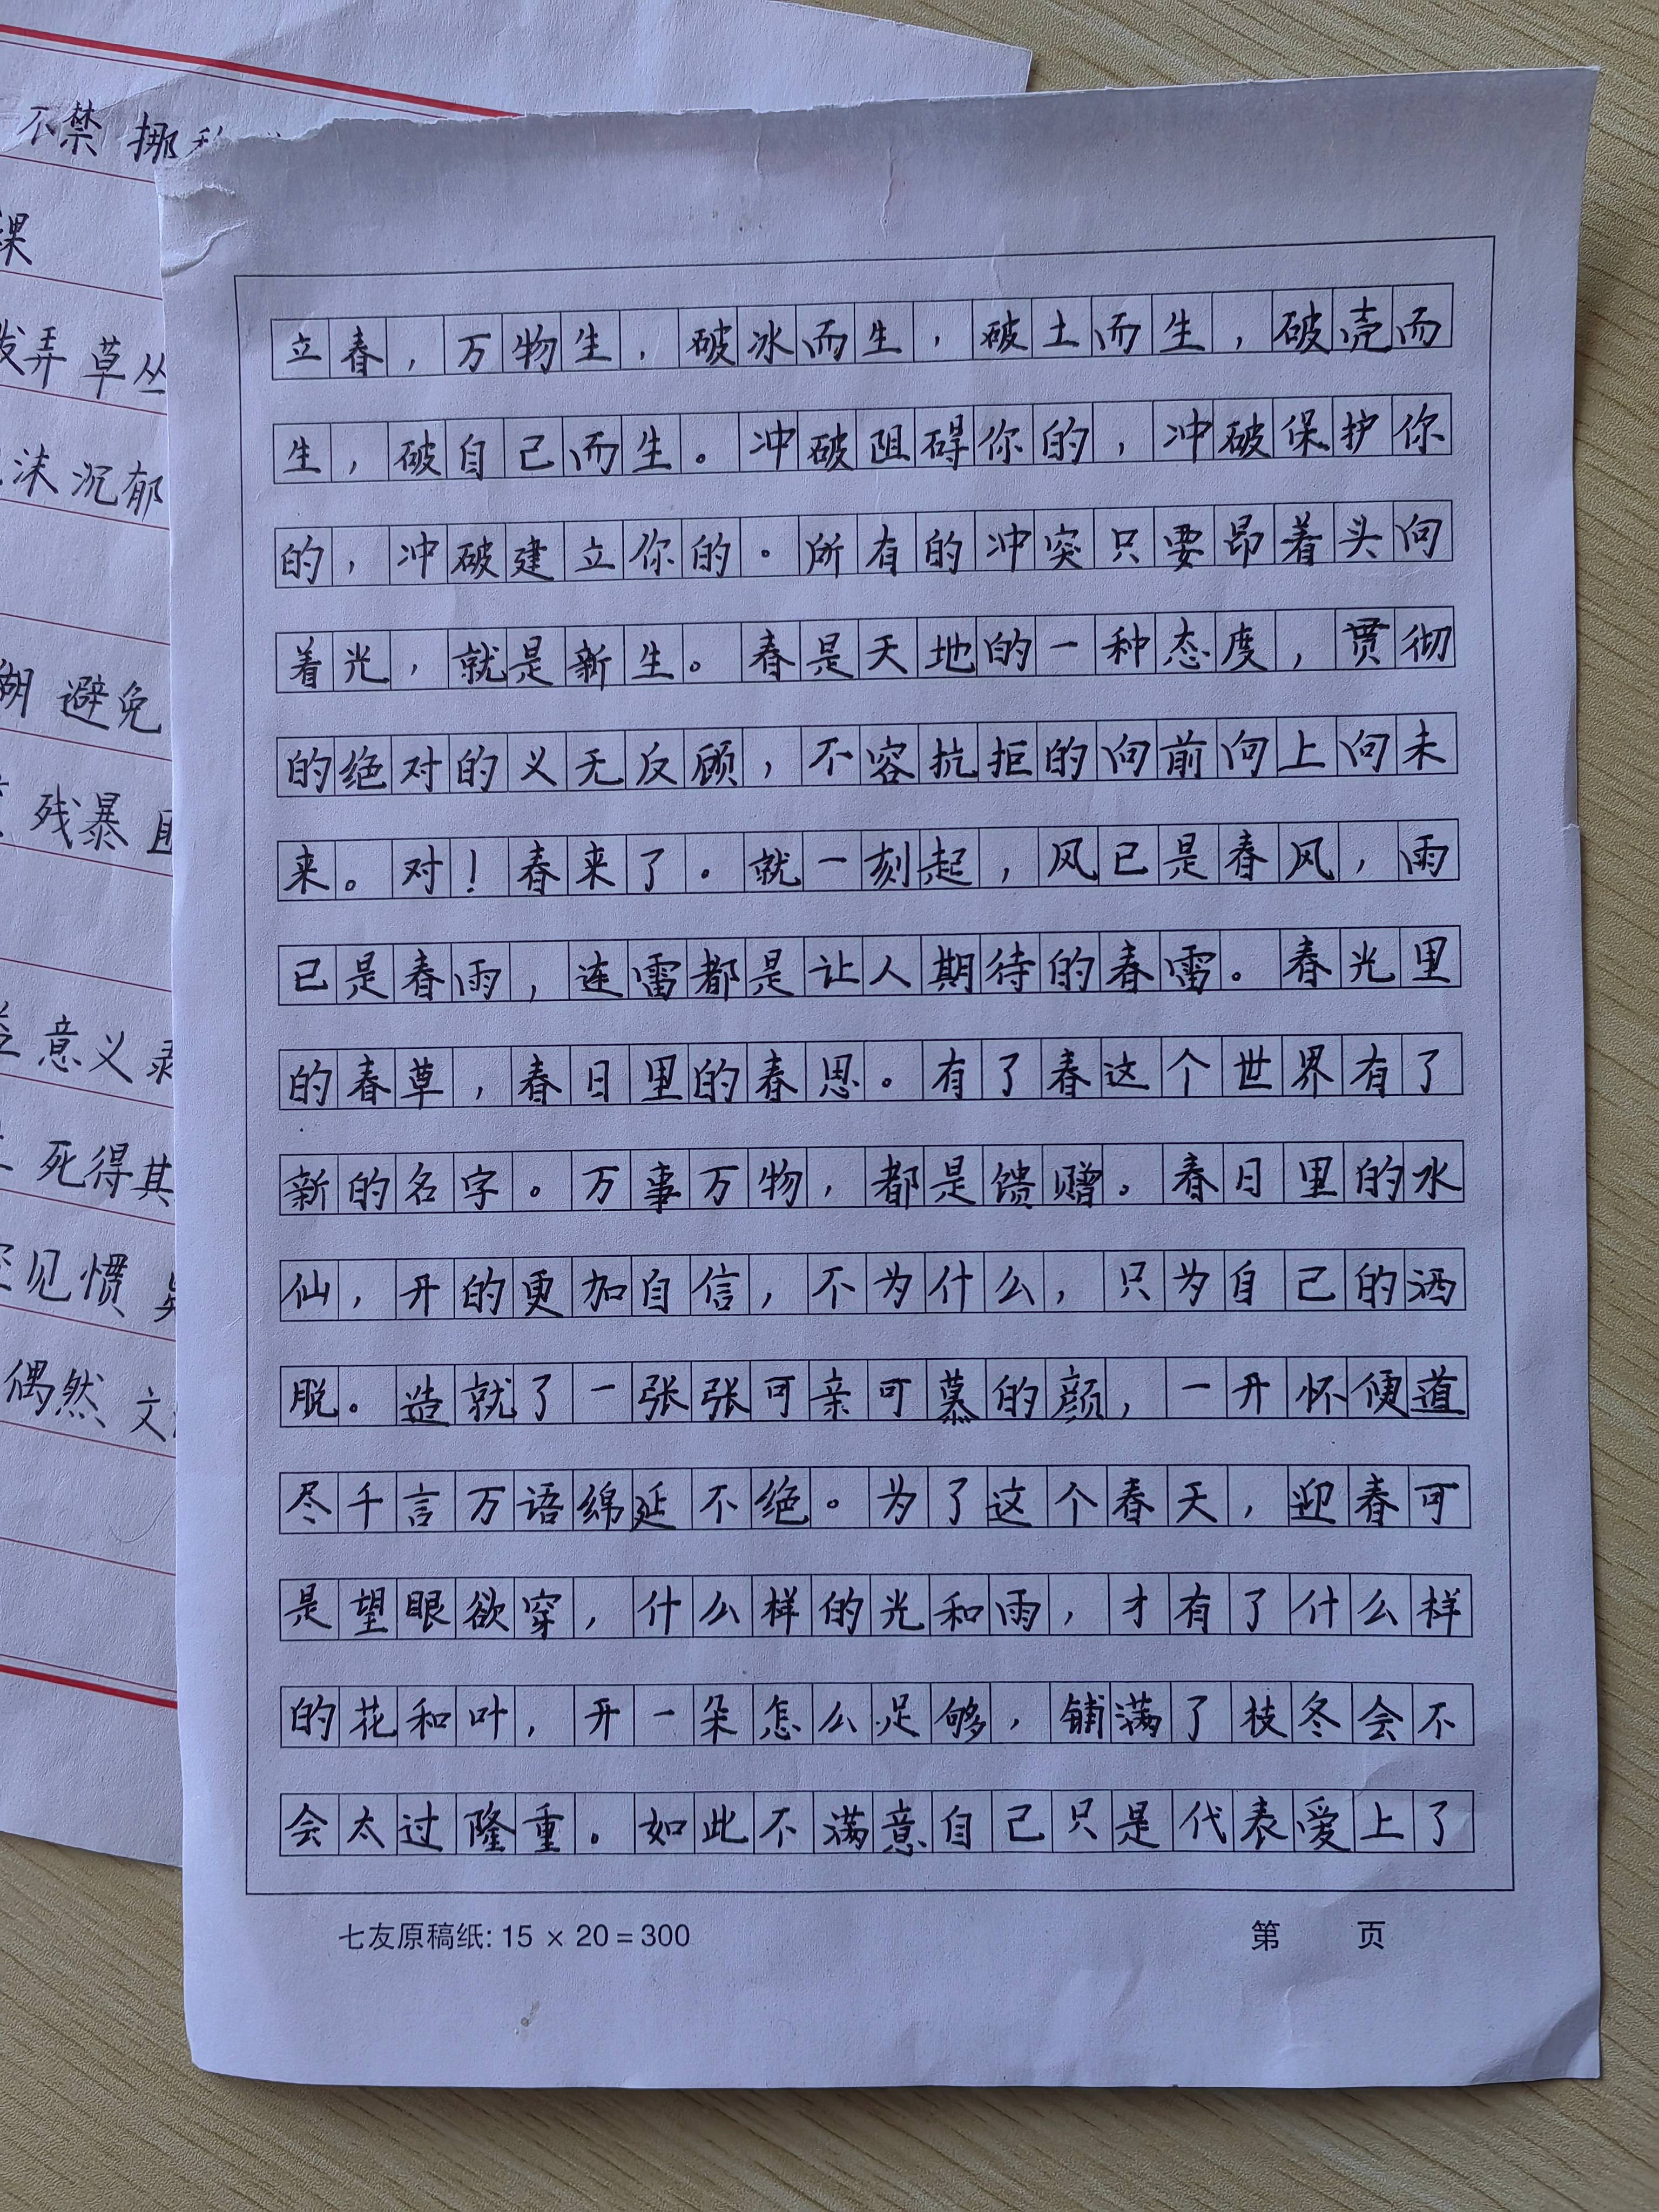 不禁 挪
课
弄 草丛
沫 沉郁
糊 避免
残暴
意义
死得其
见惯
偶然 文
立春，万物生，破冰而生，破土而生，破壳而
生，破自己而生。冲破阻碍你的，冲破保护你
的，冲破建立你的。所有的冲突只要昂着头向
着光，就是新生。春是天地的一种态度，贯彻
的绝对的义无反顾，不容抗拒的向前向上向未
来。对！春来了。就一刻起，风已是春风，雨
已是春雨，连雷都是让人期待的春雷。春光里
的春草，春日里的春思。有了春这个世界有了
新的名字。万事万物，都是馈赠。春日里的水
仙，开的更加自信，不为什么，只为自己的洒
脱。造就了一张张可亲可慕的颜，一开怀便道
尽千言万语绵延不绝。为了这个春天，迎春可
是望眼欲穿，什么样的光和雨，才有了什么样
的花和叶，开一朵怎么足够，铺满了枝冬会不
会太过隆重。如此不满意自己只是代表爱上了
七友原稿纸: 15 × 20 = 300 第 页